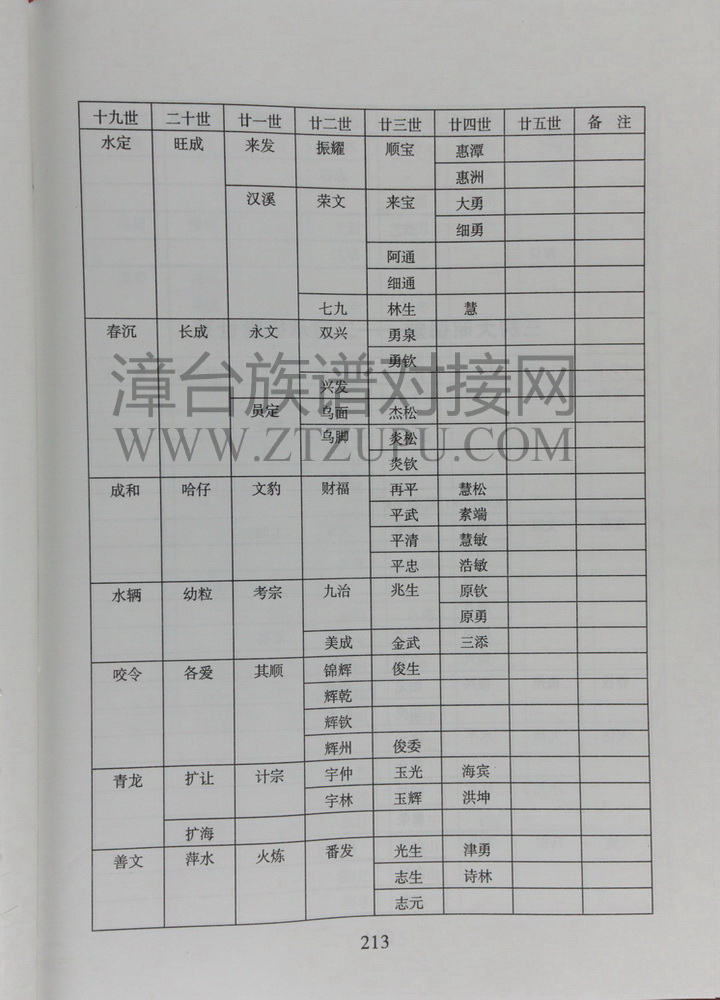 十九世 二十世 廿一世 廿二世 廿三世 廿四世 廿五世 备 注
水定 旺成 来发 振耀 顺宝 惠潭
惠洲
汉溪 荣文 来宝 大勇
细勇
阿通
细通
七九 林生 慧
春沉 长成 永文 双兴 勇泉
勇钦
兴发
员定 乌面 杰松
乌脚 炎松
炎钦
漳台族谱对接网
WWW.ZTZUPU.COM
成和 哈仔 文豹 财福 再平 慧松
平武 素端
平清 慧敏
平忠 浩敏
水辆 幼粒 考宗 九治 兆生 原钦
原勇
美成 金武 三添
咬令 各爱 其顺 锦辉 俊生
辉乾
辉钦
辉州 俊委
青龙 扩让 计宗 宇仲 玉光 海宾
宇林 玉辉 洪坤
扩海
善文 萍水 火炼 番发 光生 津勇
志生 诗林
志元
213